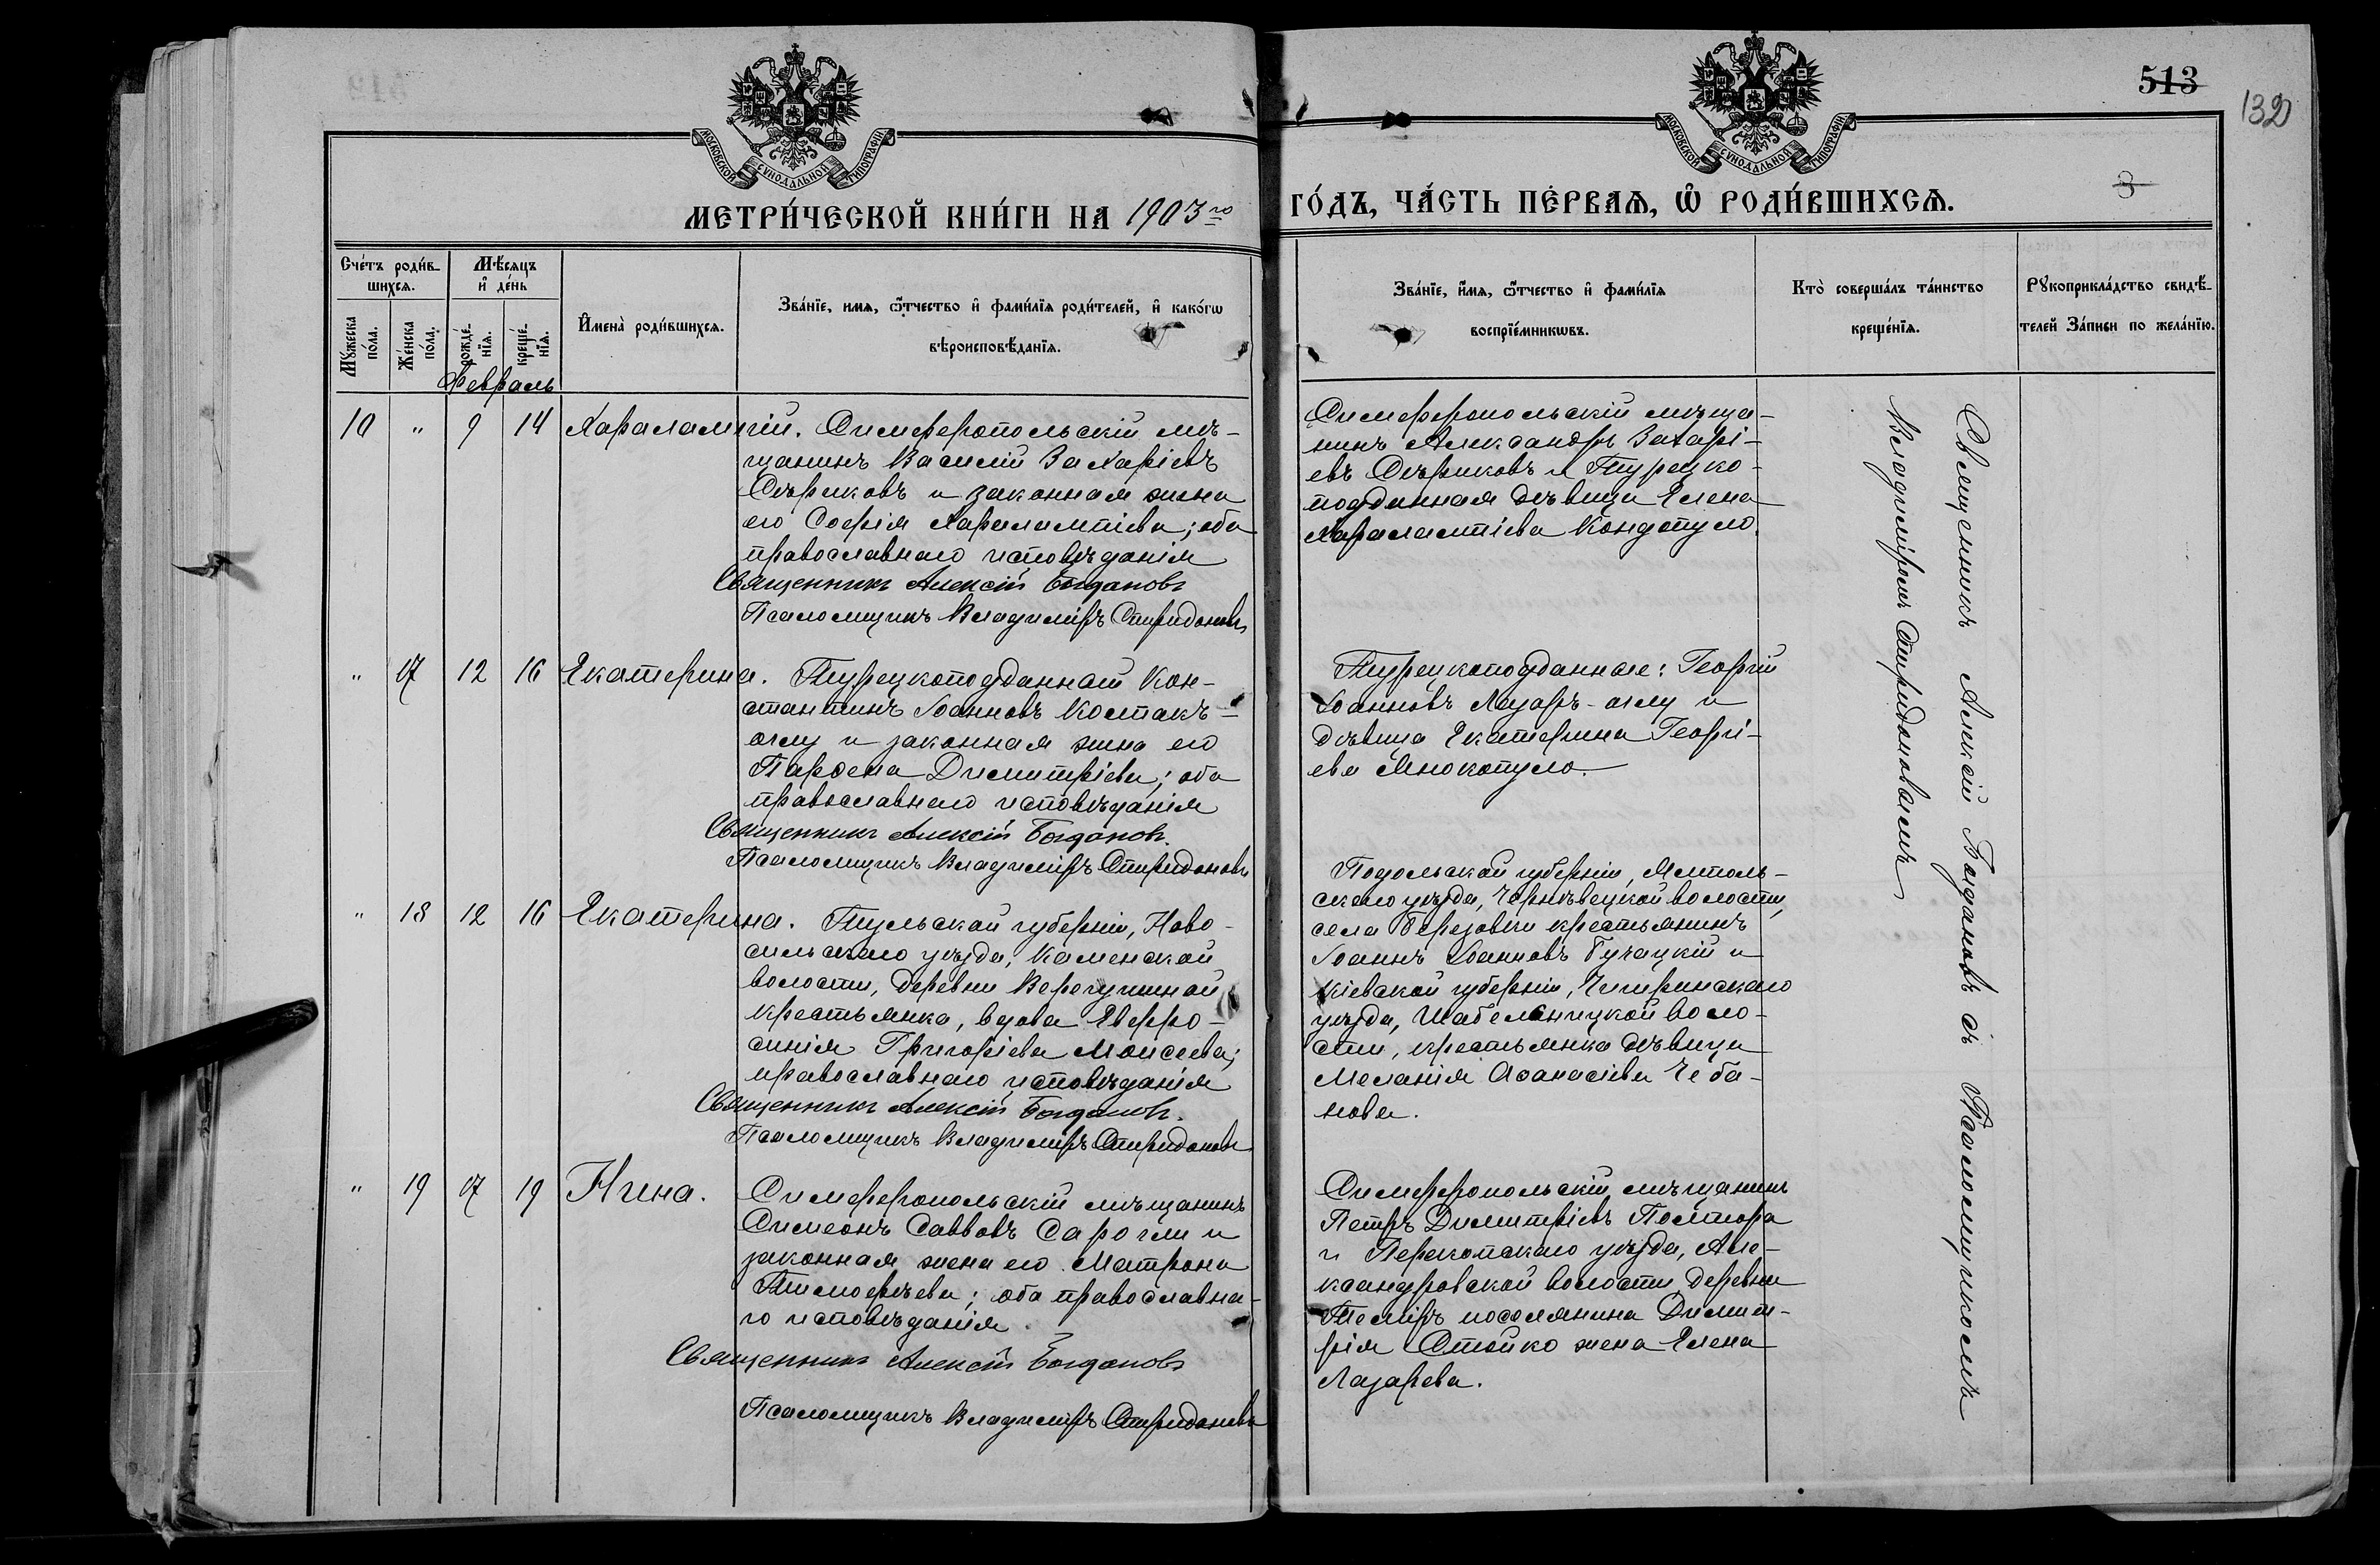 513
132
3
МОСКОВСКОЙ СУНОДАЛЬНОЙ ТИПОГРАФІИ
МОСКОВСКОЙ СУНОДАЛЬНОЙ ТИПОГРАФІИ
МЕТРИ́ЧЕСКОЙ КНИ́ГИ НА 1903го
ГО́ДЪ, ЧА́СТЬ ПЕ́РВАѦ, Ѡ҆ РОДИ́ВШИХСѦ.
Сче́тъ роди́в-
шихсѧ.
Мꙋ́жеска по́ла.
Же́нска по́ла.
Мѣ́сѧцъ
и҆ де́нь
рожде́-нїѧ.
креще́-нїѧ.
И҆мена̀ роди́вшихсѧ.
Зва́нїе, имѧ, ѻ҆́тчество и҆ фами́лїѧ роди́телей, и҆ како́гѡ
вѣроисповѣ́данїѧ.
Зва́нїе, и҆́мѧ, ѻ҆́тчество и҆ фами́лїѧ
воспрїе́мникѡвъ.
Кто̀ соверша́лъ та́инство
креще́нїѧ.
Рꙋкоприкла́дство свидѣ́-
телей за́писи по жела́нїю.
Февраль
10 " 9 14 Харалампій. Симферопольскій мѣ-
щанинъ Василій Захаріевъ
Сѣриковъ и законная жена
его Софія Харалампіева; оба
православнаго исповѣданія
Священникъ Алексій Богдановъ
Псаломщикъ Владиміръ Спиридоновъ
Симферопольскій мѣща-
нинъ Александръ Захарі-
евъ Сѣриковъ и Турецко-
подданная дѣвица Елена
Харалампіева Кондопуло.
" 17 12 16 Екатерина. Турецкоподданный Кон-
стантинъ Іоанновъ Костакъ-
оглу и законная жена его
Парѳена Димитріева; оба
православнаго исповѣданія
Священникъ Алексій Богдановъ.
Псаломщикъ Владиміръ Спиридоновъ
Турецкоподданные: Георгій
Іоанновъ Лазаръ-оглу и
дѣвица Екатерина Георгі-
ева Мнокопуло.
" 18 12 16 Екатерина. Тульской губерніи, Ново-
сильскаго уѣзда, Каменской
волости, деревни Верегушиной
крестьянка, вдова Евфро-
синія Григоріева Моисеева;
православнаго исповѣданія
Священникъ Алексій Богдановъ.
Псаломщикъ Владиміръ Спиридоновъ
Подольской губерніи, Ямполь-
скаго уѣзда, Чернѣвецкой волости,
села Березовки крестьянинъ
Іоаннъ Іоанновъ Бучацкій и
Кіевской губерніи, Чигиринскаго
уѣзда, Шабельницкой воло-
сти, крестьянка дѣвица
Меланія Аѳанасіева Чеба-
нова.
" 19 17 19 Нина. Симферопольскій мѣщанинъ
Симеонъ Саввовъ Сарогли и
законная жена его Матрона
Тимоѳѣева; оба православна-
го исповѣданія.
Священникъ Алексій Богдановъ
Псаломщикъ Владиміръ Спиридоновъ
Симферопольскій мѣщанинъ
Петръ Димитріевъ Полтора
и Перекопскаго уѣзда, Але-
ксандровской волости деревни
Темиръ поселянина Димит-
рія Стойко жена Елена
Лазарева.
Священникъ Алексій Богдановъ съ Псаломщикомъ
Владиміромъ Спиридоновымъ